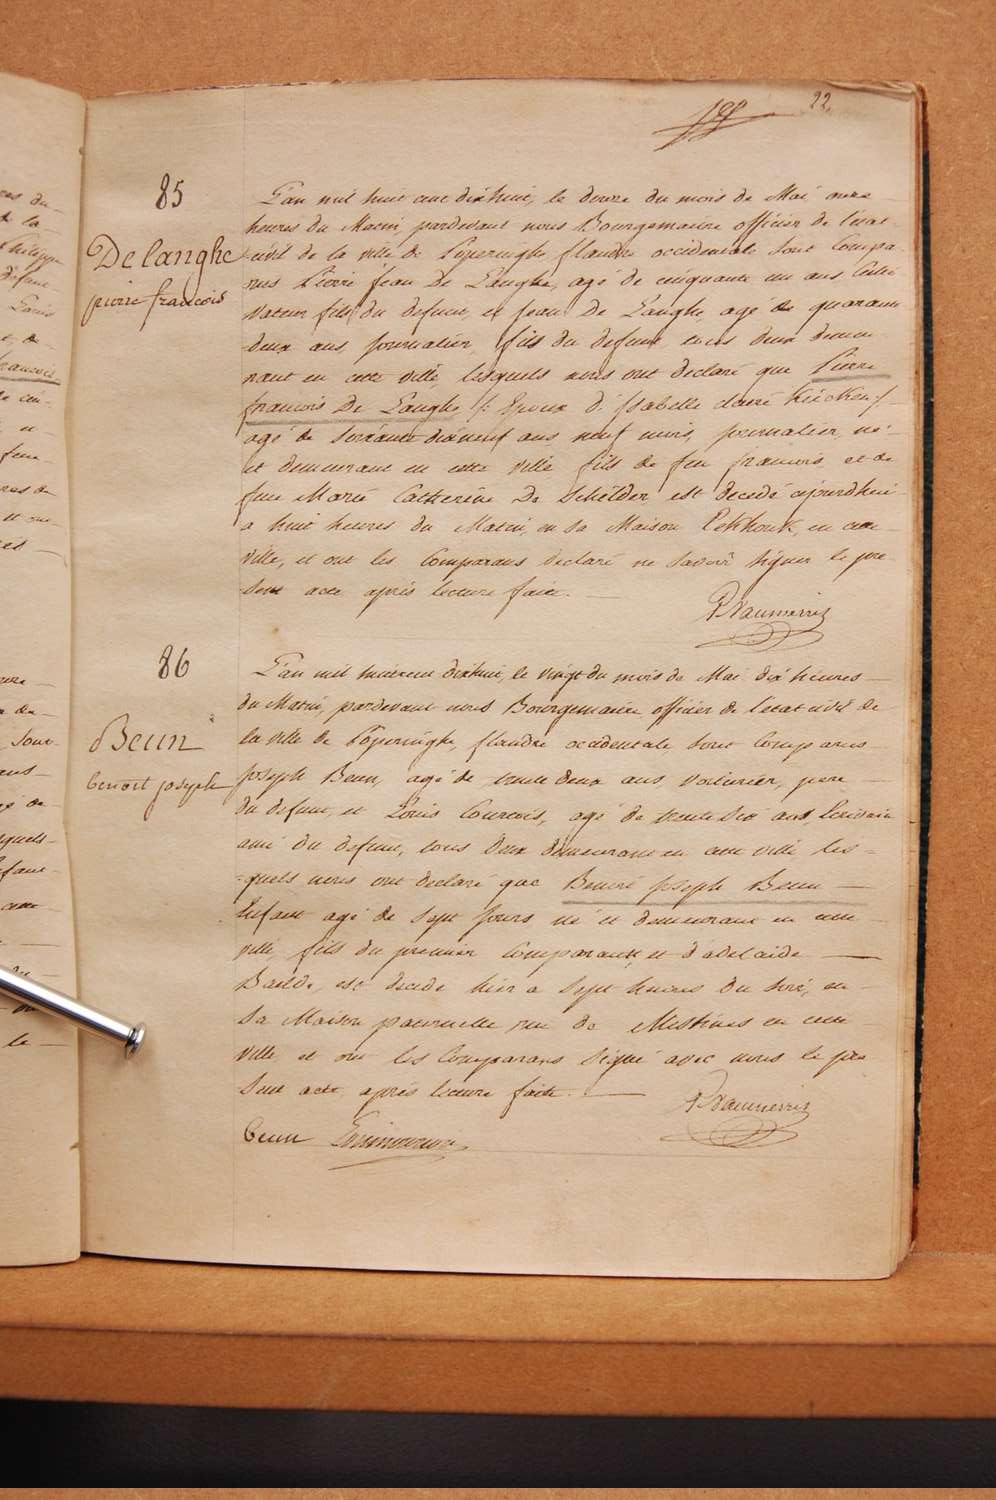 22
85
Delanghe
pierre francois
L'an mil huit cent dixhuit, le douze du mois de Mai onze
heures du Matin, pardevant nous Bourgemaitre officier de l'état
civil de la ville de Poperinghe flandre occidentale sont Compa-
rus Pierre Jean De Langhe, agé de cinquante un ans Culti-
vateur fils du defunt, et Jean De Langhe, agé de quarante
deux ans, journalier, fils du defunt tous deux demeu-
rant en cette ville lesquels nous ont declaré que Pierre
francois De Langhe /: Epoux d'Isabelle claire Kücken :/
agé de soixante dixneuf ans neuf mois, journalier, né
et demeurant en cette ville fils de feu francois et de
feue Marie Catherine De Schilder est decedé aujourdhui
a huit heures du Matin, en sa Maison Pekhoek, en cette
ville, et ont les Comparans declaré ne Savoir Signer le pre-
sent acte après lecture faite.
86
Beun
benoit joseph
L'an mil huit cent dixhuit, le vingt du mois de Mai dix heures
du Matin, pardevant nous Bourgemaitre officier de l'etat civil de
la ville de Poperinghe, flandre occidentale sont Comparus
Joseph Beun, agé de trente deux ans, voiturier, pere
du defunt, et Louis Courtois, agé de trente six ans, Ecrivain
ami du defunt, tous deux demeurant en cette ville les-
quels nous ont declaré que Benoit Joseph Beun
Enfant agé de Sept Jours né et demeurant en cette
ville, fils du premier Comparant et d'adelaide
Baelde, est decedé hier a Sept heures du soir, en
sa Maison paternelle rue de en cette
ville, et ont les Comparans Signé avec nous le pre
sent acte, après lecture faite.
beun